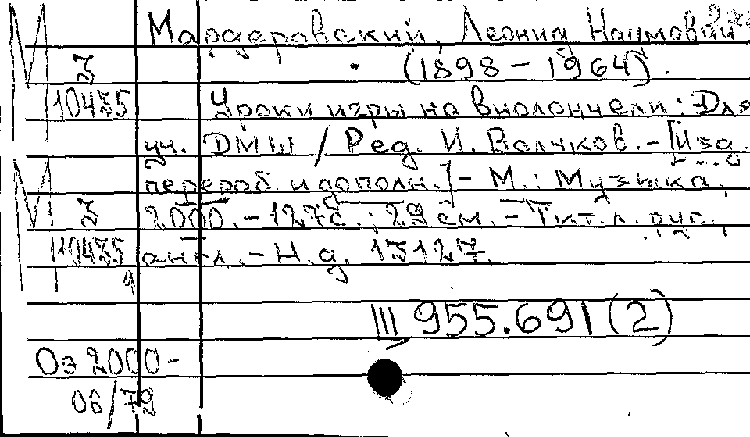 Мардеровский, Леонид Наумович
(1898 – 1964).
М З 10475 Уроки игры на виолончели: Для
уч. ДМШ / Ред. И. Волчков. – [Изд.
перераб. и дополн.] – М.: Музыка,
М З 10475 2000. – 127с.; 29 см. – Тит. л. рус.,
англ. – Н. д. 15127.
III 955.691 (2)
Оз 2000 –
06/79